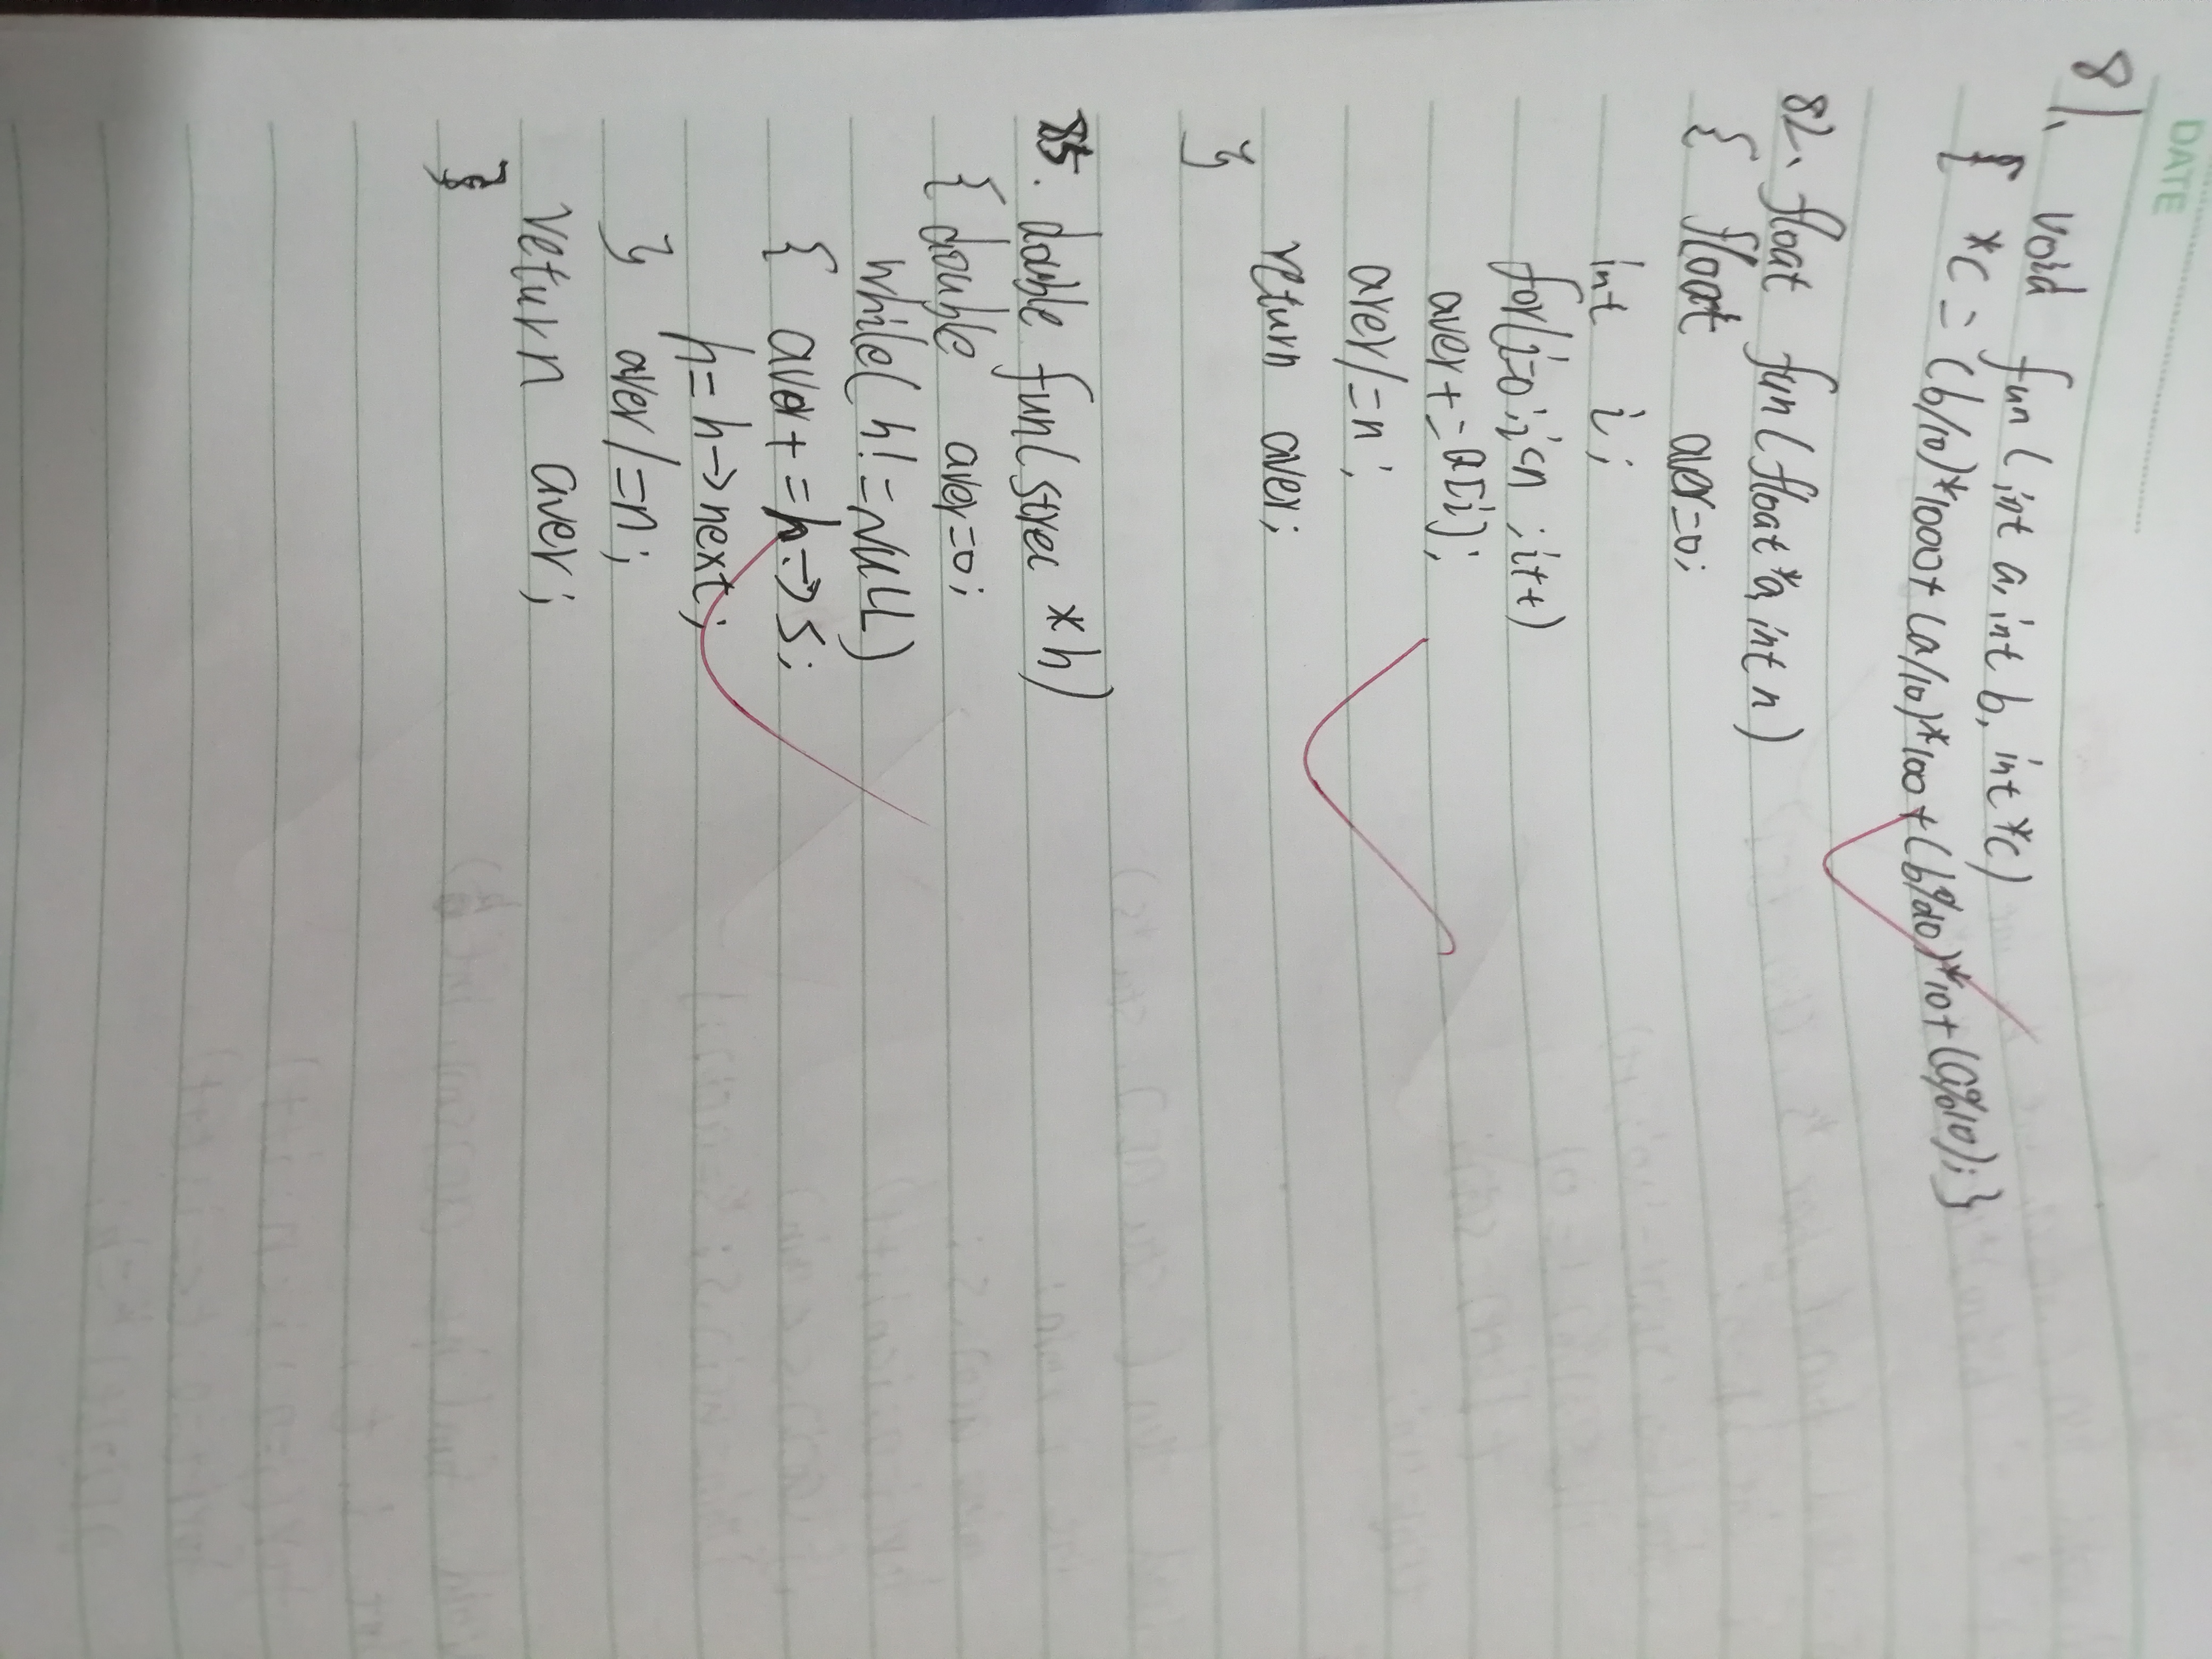 DATE
81. void fun(int a, int b, int *c)
{ *c = (b/10)*1000+(a/10)*100+(b%10)*10+(a%10);}
82. float fun(float *a, int n)
{ float aver=0;
int i;
for(i=0;i<n;i++)
aver+=a[i];
aver/=n;
return aver;
}
85. double fun(strec *h)
{ double aver=0;
while(h!=NULL)
{ aver+=h->s;
h=h->next;
} aver/=n;
return aver;
}